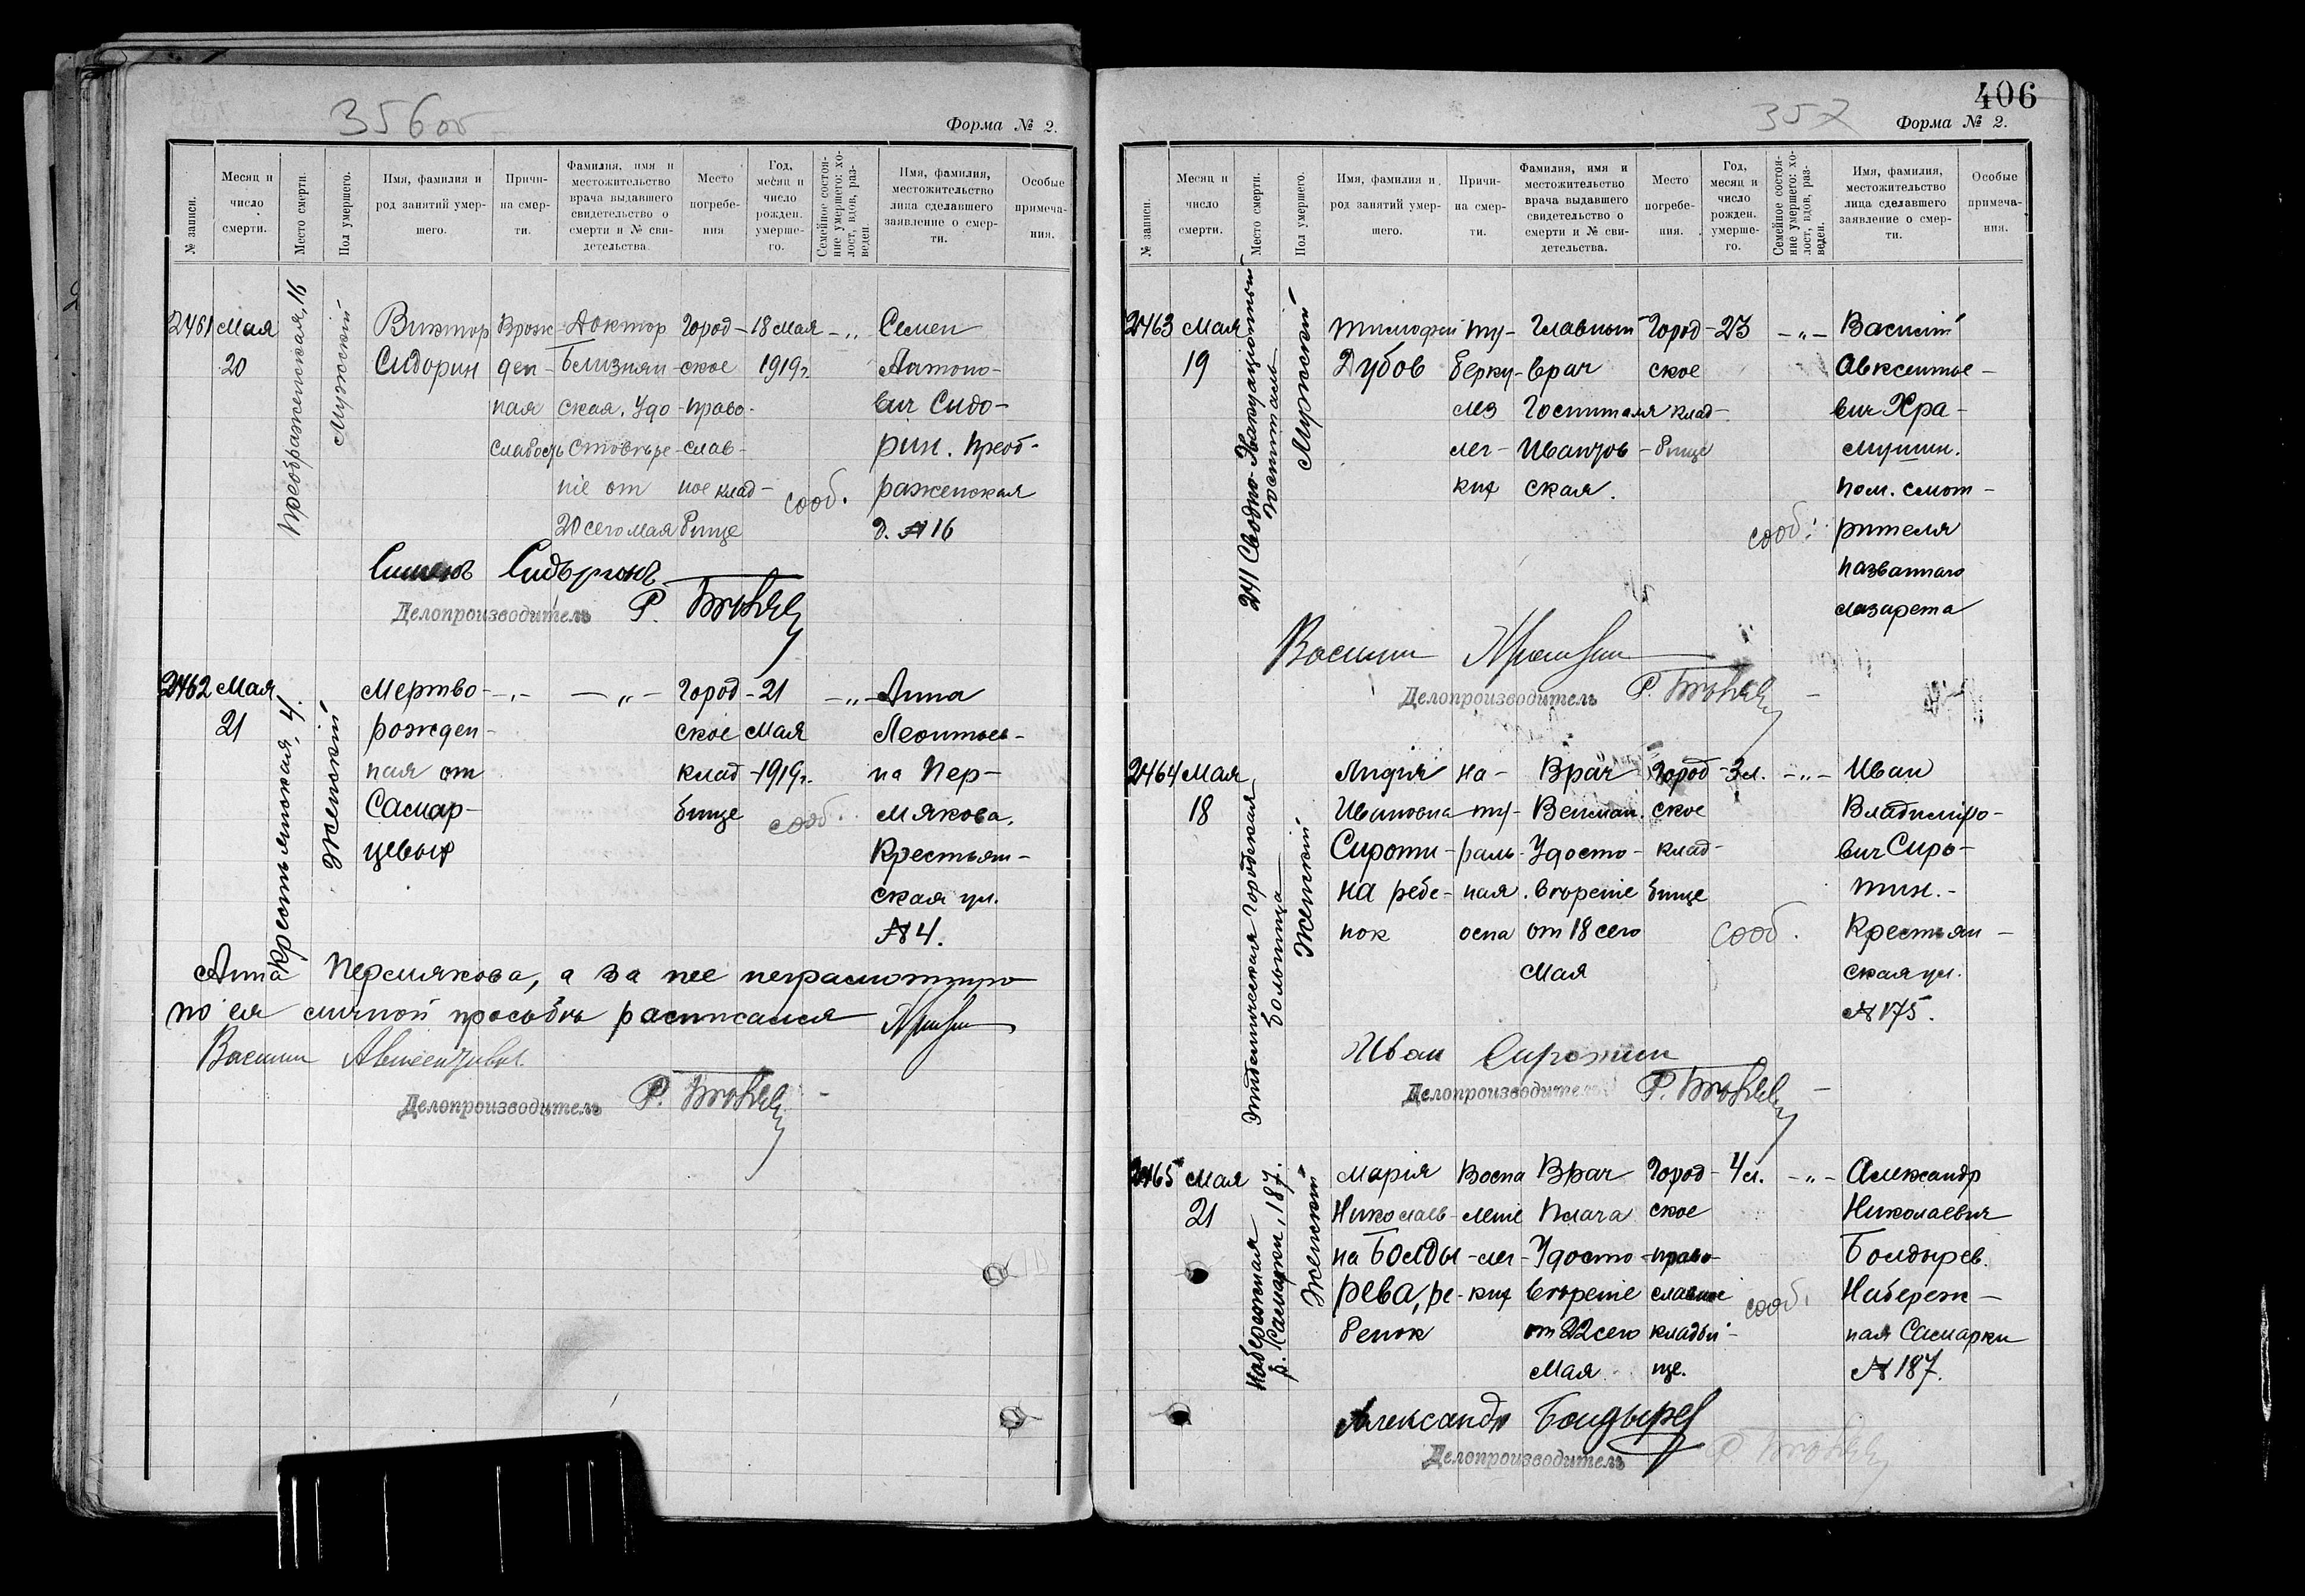 356об
Форма № 2.
№ записи.
Месяц и число смерти.
Место смерти.
Пол умершего.
Имя, фамилия и род занятий умер-шего.
Причи-на смер-ти.
Фамилия, имя и местожительство врача выдавшего свидетельство о смерти и № сви-детельства.
Место погребе-ния
Год, месяц и число рожден. умерше-го.
Семейное состоя-ние умершего: хо-лост, вдов, раз-веден.
Имя, фамилия, местожительство лица сделавшего заявление о смер-ти.
Особые примеча-ния.
2461 Мая
20
Преображенская, 16
Мужской
Виктор
Сидорин
Врож-
ден-
ная
слабость
Доктор
Близнян-
ская. Удо-
стовѣре-
ніе от
20 сего мая
Город-
ское
право-
слав-
ное клад-
бище
18 мая
1919г.
-„-
сооб.
Семен
Антоно-
вич Сидо-
рин. Преоб-
раженская
д. № 16
Семенъ Сидоринъ
Делопроизводитель Р.
2462 Мая
21
Крестьянская, 4.
Женский
Мертво-
рожден-
ная от
Самар-
цевых
-„-
-„-
Город-
ское
клад-
бище
21
Мая
1919г.
-„-
сооб.
Анна
Леонтьев-
на Пер-
мякова.
Крестьян-
ская ул.
№ 4.
Анна Пермякова, а за нее неграмотную
по ея личной просьбѣ расписался
Василий
Делопроизводитель Р.
406
357
Форма № 2.
№ записи.
Месяц и число смерти.
Место смерти.
Пол умершего.
Имя, фамилия и род занятий умер-шего.
Причи-на смер-ти.
Фамилия, имя и местожительство врача выдавшего свидетельство о смерти и № сви-детельства.
Место погребе-ния.
Год, месяц и число рожден. умерше-го.
Семейное состоя-ние умершего: хо-лост, вдов, раз-веден.
Имя, фамилия, местожительство лица сделавшего заявление о смер-ти.
Особые примеча-ния.
2463 Мая
19
241 Сводно-Эвакуационный
госпиталь
Мужской
Тимофей
Дубов
ту-
берку-
лез
лег-
ких
Главный
врач
Госпиталя
Иванов-
ская.
Город-
ское
клад-
бище
23
-„-
сооб.
Василий
Авксентье-
вич Хра-
мушин.
Пом. смот-
рителя
названнаго
лазарета
Василий
Делопроизводитель Р.
2464 Мая
18
Эпидемическая Городская
больница
Женский
Лидия
Ивановна
Сироти-
на ребе-
нок
на-
ту-
раль-
ная
оспа
Врач
Вейсман.
Удосто-
вѣреніе
от 18 сего
мая
Город-
ское
клад-
бище
3 л.
-„-
сооб.
Иван
Владиміро-
вич Сиро-
тин.-
Крестьян-
ская ул.
№ 175.
Иван Сиротин
Делопроизводитель Р.
2465 Мая
21
Набережная
р. Самарки, 187.
Женский
Марія
Николаев-
на Болды-
рева, ре-
бенок
Воспа
леніе
лег-
ких
Врач
Плача
Удосто-
вѣреніе
от 22 сего
мая
Город-
ское
право-
славное
кладби-
ще.
4 л.
-„-
сооб.
Александр
Николаевич
Болдырев.
Набереж-
ная Самарки
№ 187.
Александр Болдырев
Делопроизводитель Р.